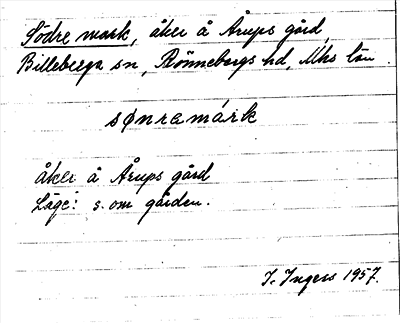 Södre mark, åker å Årups gård,
Billeberga sn, Rönnebergs hd, Mhs län.
sønramárk
åker å Årups gård
Läge: s. om gården.
I. Ingers 1957.